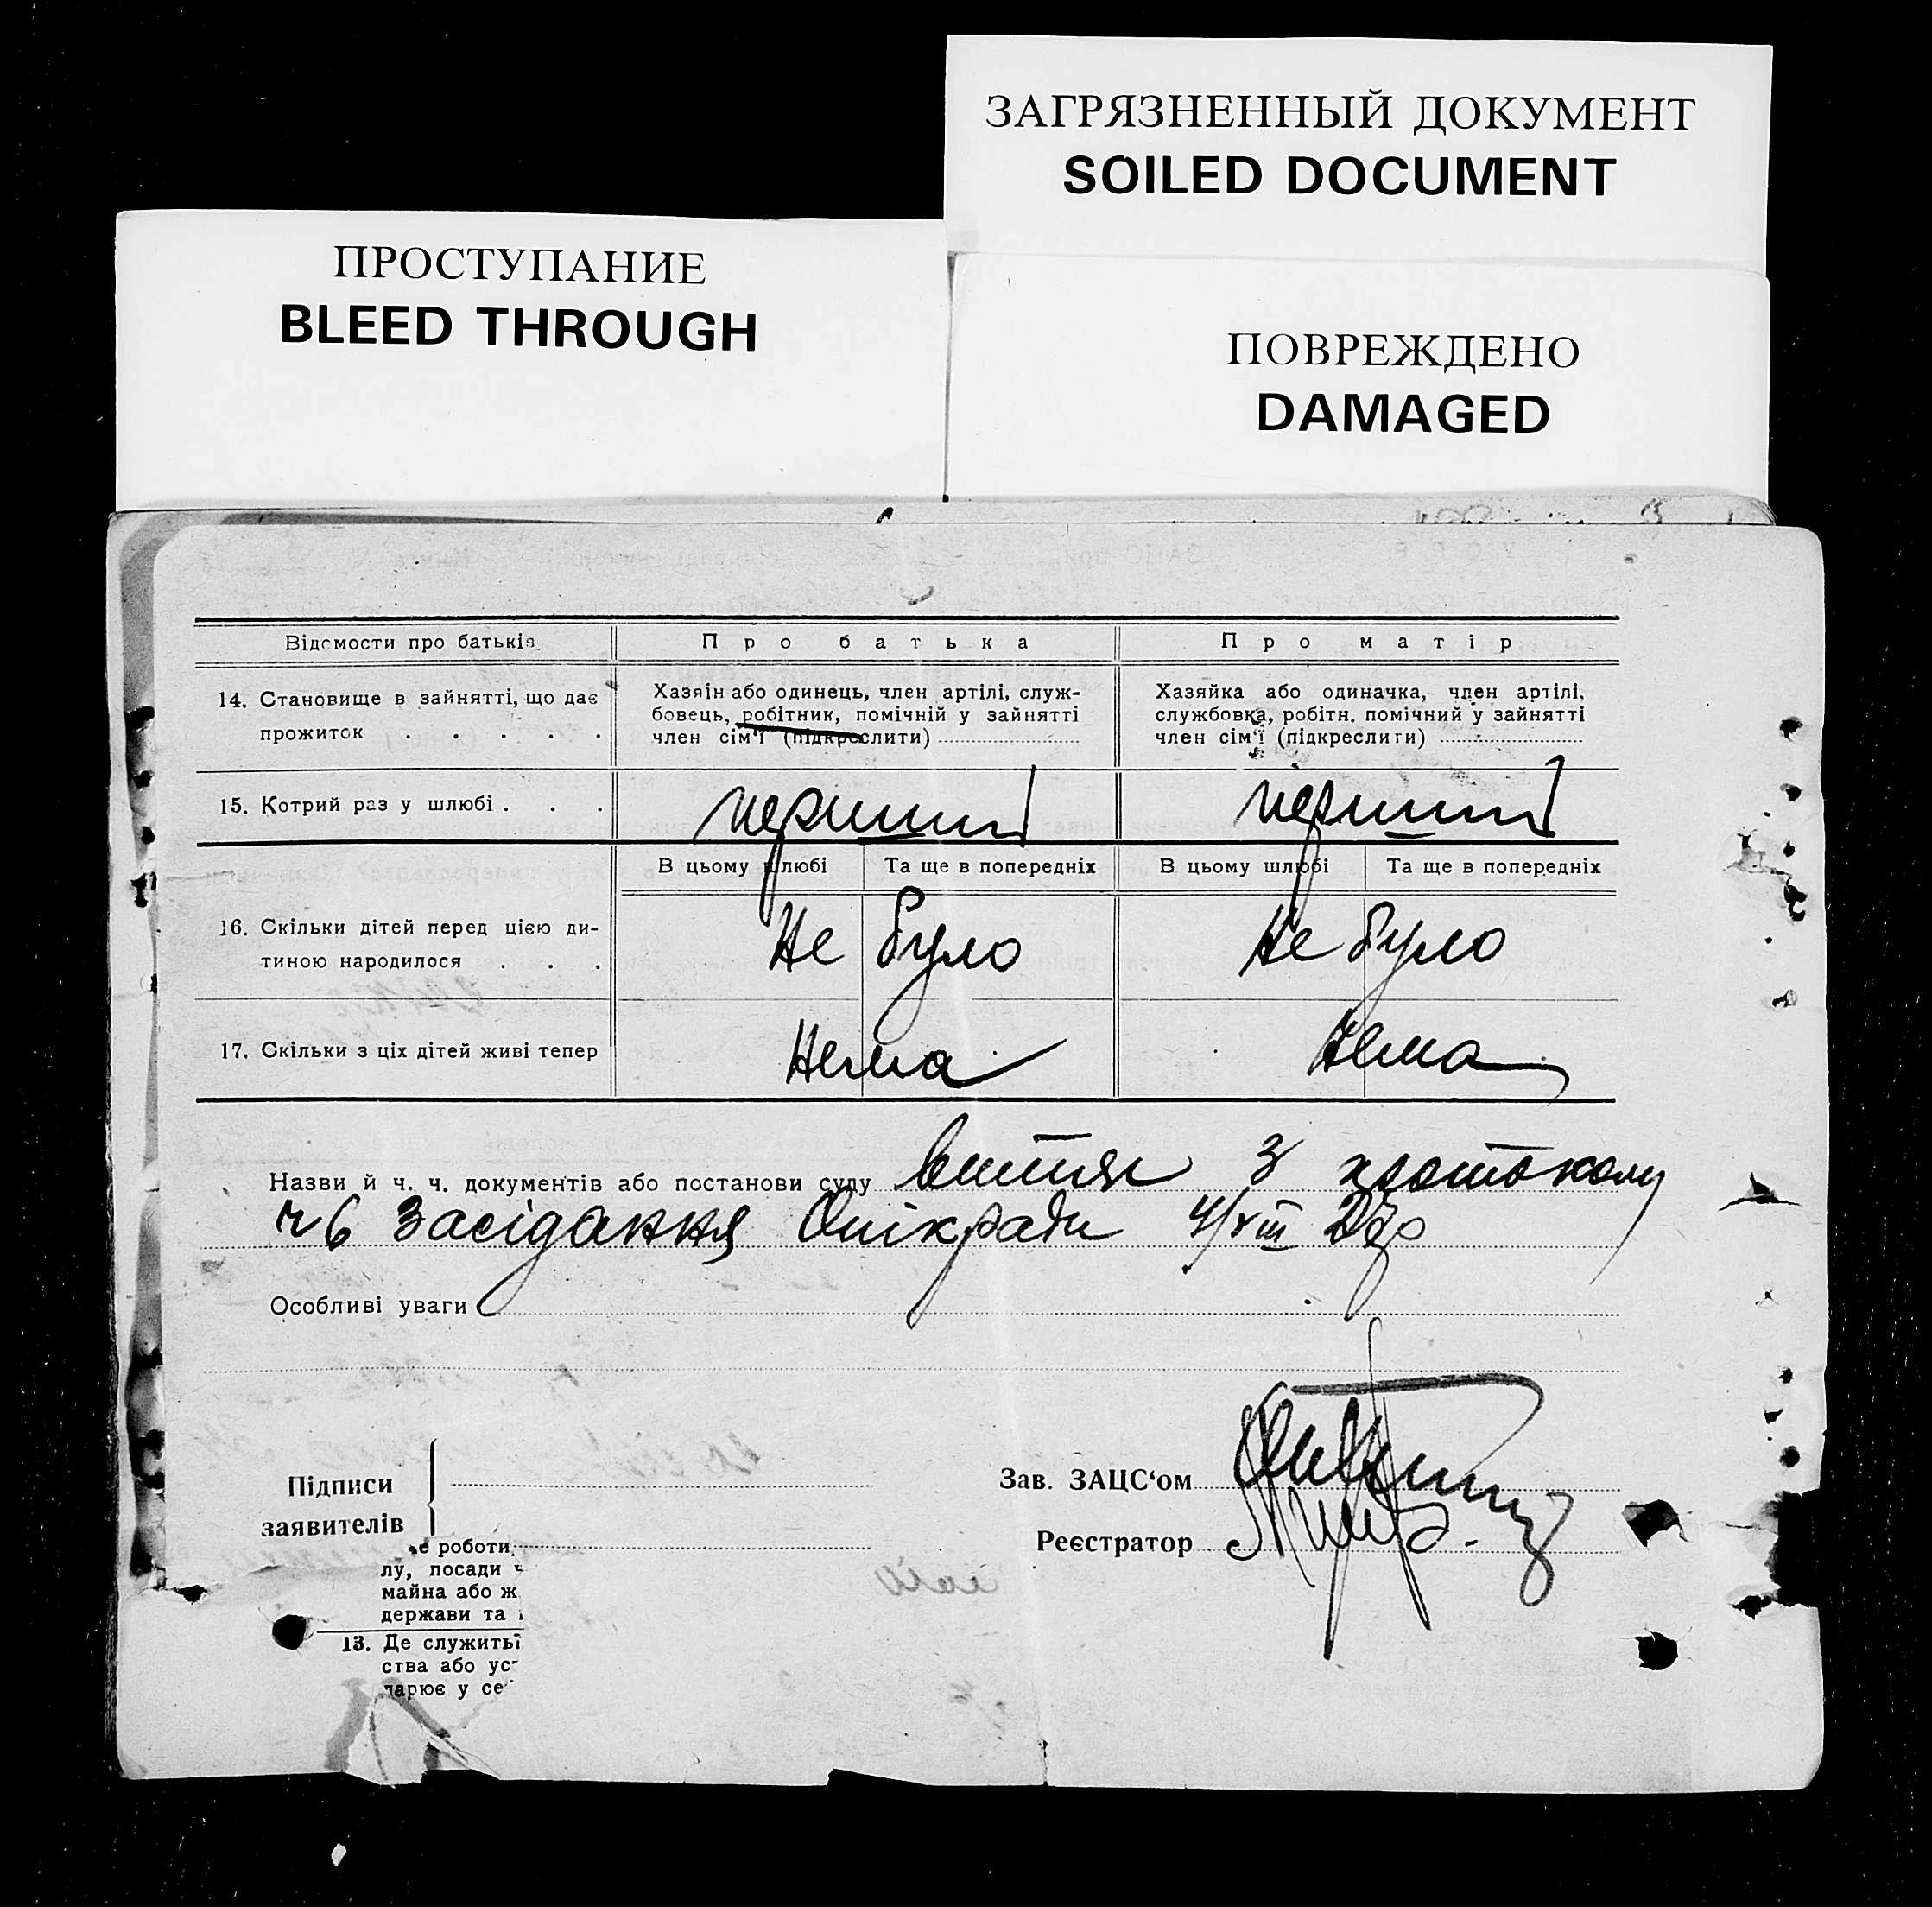 ЗАГРЯЗНЕННЫЙ ДОКУМЕНТ
SOILED DOCUMENT
ПРОСТУПАНИЕ
BLEED THROUGH
ПОВРЕЖДЕНО
DAMAGED
Відомости про батьків. Про батька Про матір
14. Становище в зайнятті, що дає
прожиток . . . . .
Хазяін або одинець, член артілі, служ-
бовець, робітник, помічній у зайнятті
член сім'ї (підкреслити)
Хазяйка або одиначка, член артілі,
службовка, робітн. помічний у зайнятті
член сім'ї (підкреслити)
15. Котрий раз у шлюбі . . . перший перший
В цьому шлюбі Та ще в попередніх В цьому шлюбі Та ще в попередніх
16. Скільки дітей перед цією ди-
тиною народилося . . .
Не було Не було
17. Скільки з ціх дітей живі тепер Нема Нема
Назви й ч. ч. документів або постанови суду витяг з протоколу
ч 6 Засідання Опікради 4/VIII
Особливі уваги
Підписи
заявителів
Зав. ЗАЦС'ом
Реєстратор
е роботи,
лу, посади ч
майна або ж
держави та
13. Де служить
ства або ус
дарює у се